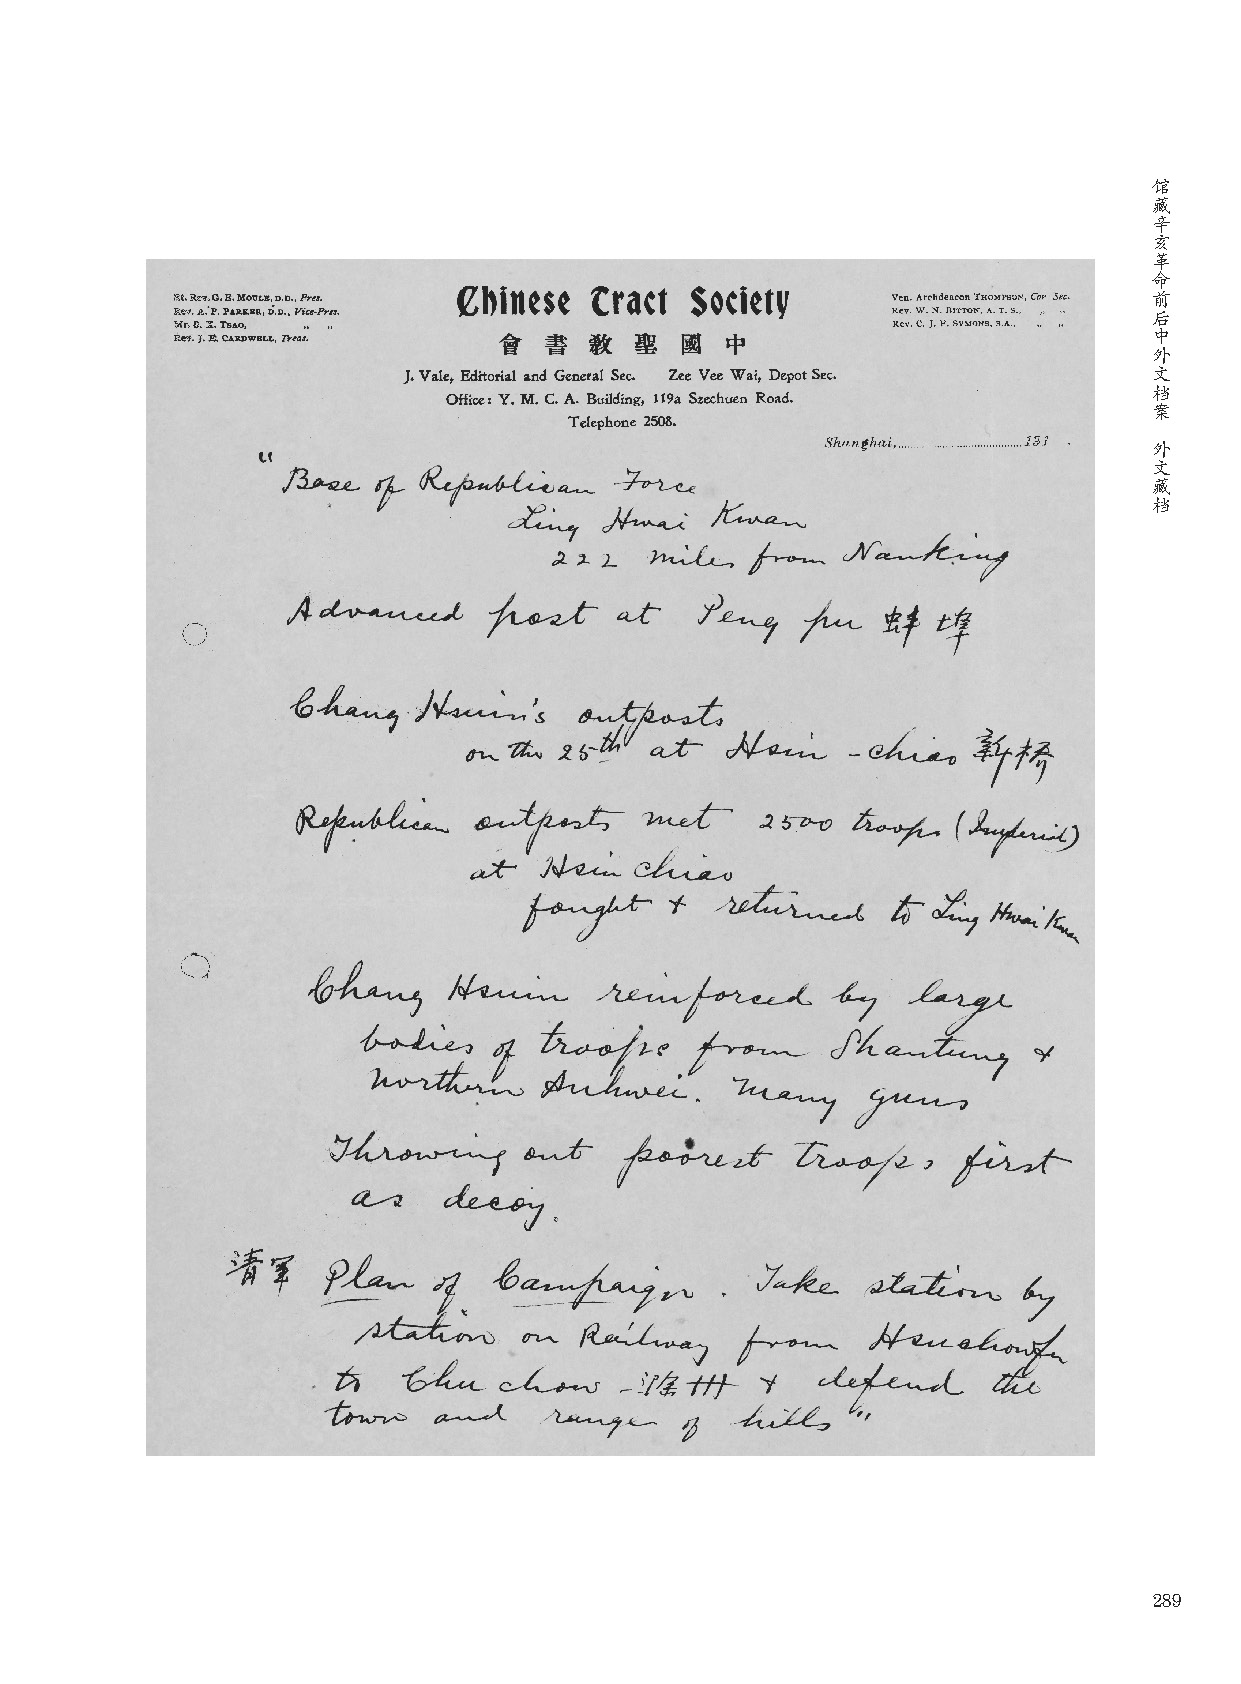 馆藏辛亥革命前后中外文档案 外文藏档
Rt. Rev. G. E. MOULE, D.D., Pres.
Rev. A. P. PARKER, D.D., Vice-Pres.
Mr. S. K. TSAO, " "
Rev. J. E. CARDWELL, Treas.
Chinese Tract Society
會書教聖國中
J. Vale, Editorial and General Sec. Zee Vee Wai, Depot Sec.
Office: Y. M. C. A. Building, 119a Szechuen Road.
Telephone 2508.
Ven. Archdeacon THOMPSON, Cor. Sec.
Rev. W. N. BITTON, A. T. S., " "
Rev. C. J. F. SYMONS, B.A., " "
Shanghai, 191 .
"Base of Republican Force
Ling Hwai Kwan
222 miles from Nanking
Advanced post at Peng pu 蚌埠
Chang Hsuin's outposts
on the 25th at Hsin-chiao 新橋
Republican outposts met 2500 troops (Imperial)
at Hsin chiao
fought + returned to Ling Hwai Kwan
Chang Hsuin reinforced by large
bodies of troops from Shantung +
Northern Anhwei. Many guns
Throwing out poorest troops first
as decoy.
清軍 Plan of Campaign. Take station by
station on Railway from Hsuchowfu
to Chu chow - 滁州 + defend the
town and range of hills"
289